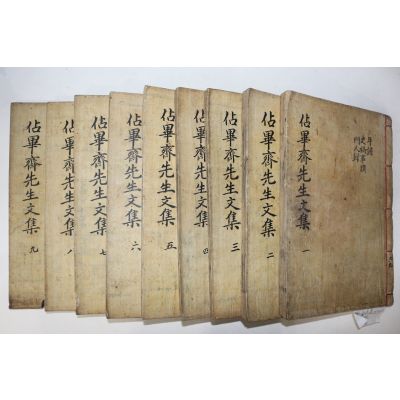 佔畢齋先生文集 一
年譜
史禍事蹟
門人錄
佔畢齋先生文集 二
佔畢齋先生文集 三
佔畢齋先生文集 四
佔畢齋先生文集 五
佔畢齋先生文集 六
佔畢齋先生文集 七
佔畢齋先生文集 八
佔畢齋先生文集 九